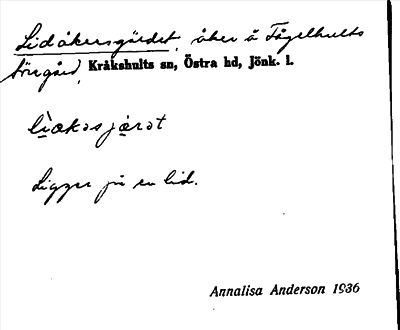 Lidåkersgärdet, åker å Fågelhults
Sörgård, Kråkshults sn, Östra hd, Jönk. l.
Ligger på en lid.
Annalisa Anderson 1936